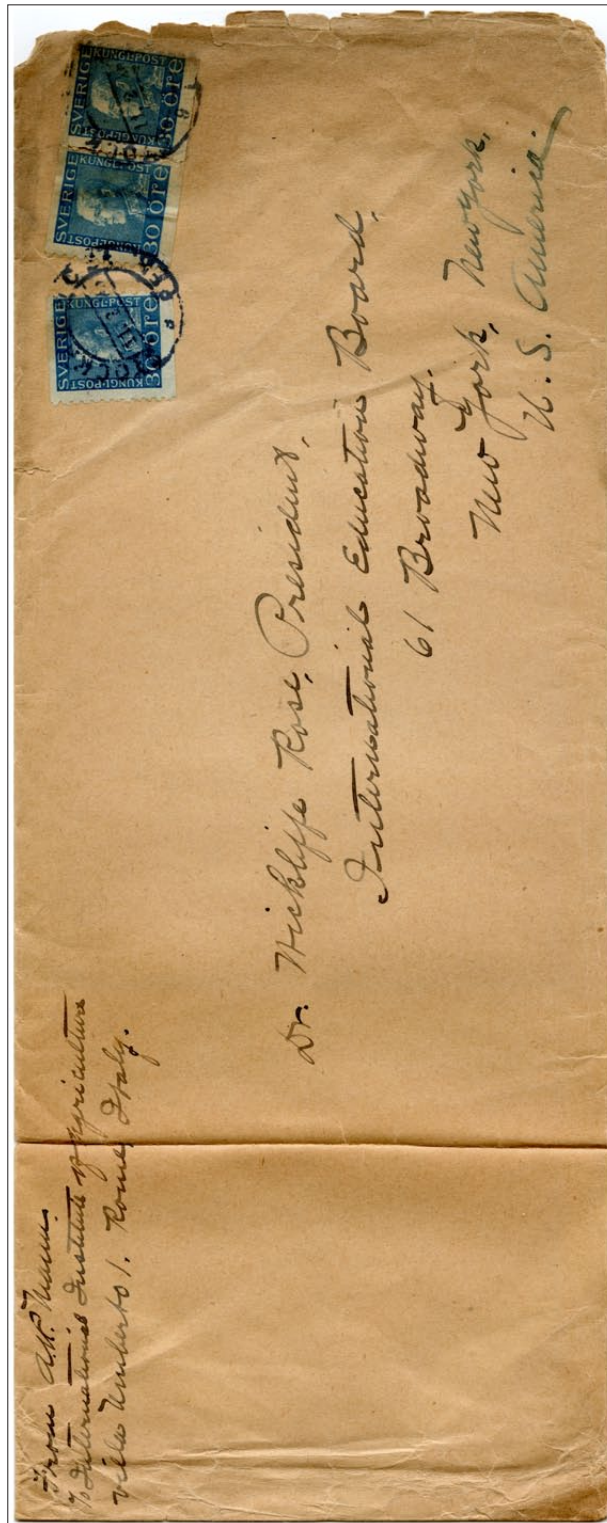 From A.R. Mann
c/o International Institute of Agriculture
Villa Umberto 1. Rome, Italy.
SVERIGE
KUNGL-POST
30 ÖRE
KUNGL-POST
SVERIGE
KUNGL-POST
30 ÖRE
KUNGL-POST
SVERIGE
KUNGL-POST
30 ÖRE
KUNGL-POST
Dr. Wickliffe Rose, President,
International Education Board,
61 Broadway.
New York, New York,
U. S. America.